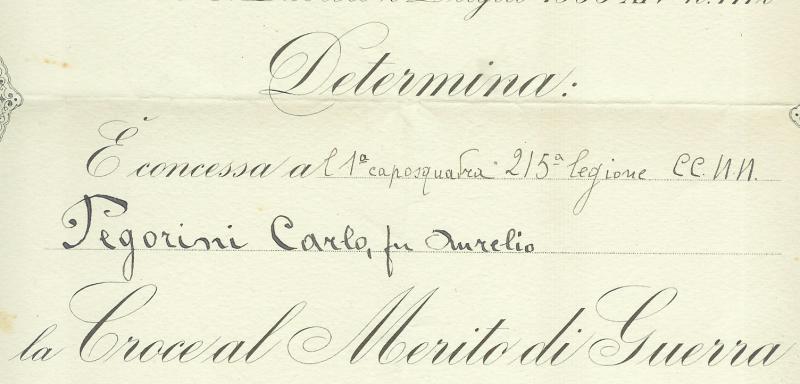 Luglio 1936 XIV n.
Determina:
È concessa al 1ª caposquadra 215ª legione CC.N.N.
Pegorini Carlo, fu Aurelio
la Croce al Merito di Guerra